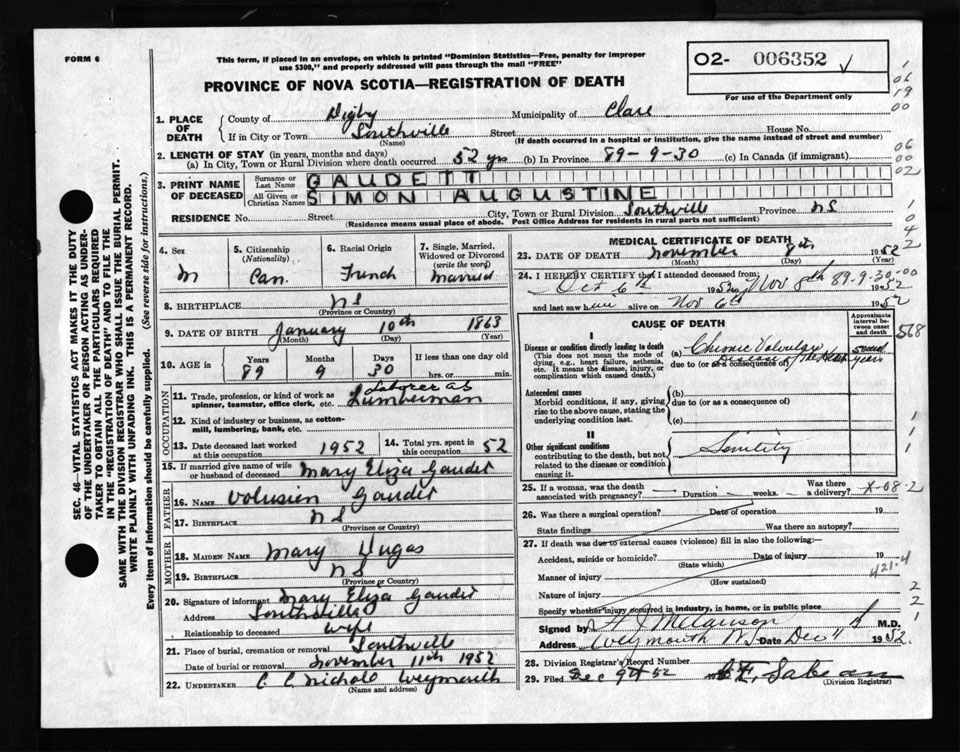 FORM 6
This form, if placed in an envelope, on which is printed "Dominion Statistics—Free, penalty for improper
use $300," and properly addressed will pass through the mail "FREE"
02- 006352 √
For use of the Department only
PROVINCE OF NOVA SCOTIA—REGISTRATION OF DEATH
1
06
19
00
1. PLACE OF DEATH
County of Digby Municipality of Clare
If in City or Town Southville Street House No.
(Name) (If death occurred in a hospital or institution, give the name instead of street and number)
2. LENGTH OF STAY (in years, months and days)
(a) In City, Town or Rural Division where death occurred 52 yrs (b) In Province 89-9-30 (c) In Canada (if immigrant)
06
00
02
3. PRINT NAME OF DECEASED
Surname or Last Name GAUDETT
All Given or Christian Names SIMON AUGUSTINE
RESIDENCE No. Street City, Town or Rural Division Southville Province NS
(Residence means usual place of abode. Post Office Address for residents in rural parts not sufficient)
1
0
4
2
4. Sex M
5. Citizenship (Nationality) Can.
6. Racial Origin French
7. Single, Married, Widowed or Divorced (write the word) Married
8. BIRTHPLACE NS
(Province or Country)
9. DATE OF BIRTH January 10th 1863
(Month) (Day) (Year)
10. AGE in Years 89 Months 9 Days 30 If less than one day old hrs. or min.
OCCUPATION
11. Trade, profession, or kind of work as spinner, teamster, office clerk, etc. Labourer as Lumberman
12. Kind of industry or business, as cotton-mill, lumbering, bank, etc.
13. Date deceased last worked at this occupation 1952
14. Total yrs. spent in this occupation 52
15. If married give name of wife or husband of deceased Mary Eliza Gaudet
FATHER
16. Name Volusion Gaudet
17. Birthplace NS
(Province or Country)
MOTHER
18. MAIDEN NAME Mary Dugas
19. BIRTHPLACE NS
(Province or Country)
20. Signature of informant Mary Eliza Gaudet
Address Southville
Relationship to deceased wife
21. Place of burial, cremation or removal Southville
Date of burial or removal November 11th 1952
22. UNDERTAKER C C Nichols Weymouth
(Name and address)
MEDICAL CERTIFICATE OF DEATH
23. DATE OF DEATH November 8th 1952
(Month) (Day) (Year)
24. I HEREBY CERTIFY that I attended deceased from
Oct 6th 1952 to Nov 8th 1952
89-9-30-00
and last saw him alive on Nov 6th 1952
CAUSE OF DEATH
Approximate interval between onset and death
568
I
Disease or condition directly leading to death
(This does not mean the mode of dying, e.g., heart failure, asthenia, etc. It means the disease, injury, or complication which caused death.)
(a) Chronic Valvular Disease of the Heart several years
due to (or as a consequence of)
Antecedent causes
Morbid conditions, if any, giving rise to the above cause, stating the underlying condition last.
(b)
due to (or as a consequence of)
(c)
II
Other significant conditions
contributing to the death, but not related to the disease or condition causing it.
Senility
1
1
1
25. If a woman, was the death associated with pregnancy? Duration weeks. Was there a delivery?
X-08-2
26. Was there a surgical operation? Date of operation 19
State findings Was there an autopsy?
27. If death was due to external causes (violence) fill in also the following:
Accident, suicide or homicide? Date of injury 19
(State which)
421-4
Manner of injury
(How sustained)
Nature of injury
Specify whether injury occurred in industry, in home, or in public place
2
2
1
Signed by M.D.
Address Weymouth N.S. Date Dec 11 1952
28. Division Registrar's Record Number
29. Filed Dec 9th 52 19
(Division Registrar)
SEC. 46—VITAL STATISTICS ACT MAKES IT THE DUTY
OF THE UNDERTAKER OR PERSON ACTING AS UNDER-
TAKER TO OBTAIN ALL THE PARTICULARS REQUIRED
IN THE "REGISTRATION OF DEATH" AND TO FILE THE
SAME WITH THE DIVISION REGISTRAR WHO SHALL ISSUE THE BURIAL PERMIT.
WRITE PLAINLY WITH UNFADING INK. THIS IS A PERMANENT RECORD.
Every item of information should be carefully supplied. (See reverse side for instructions.)